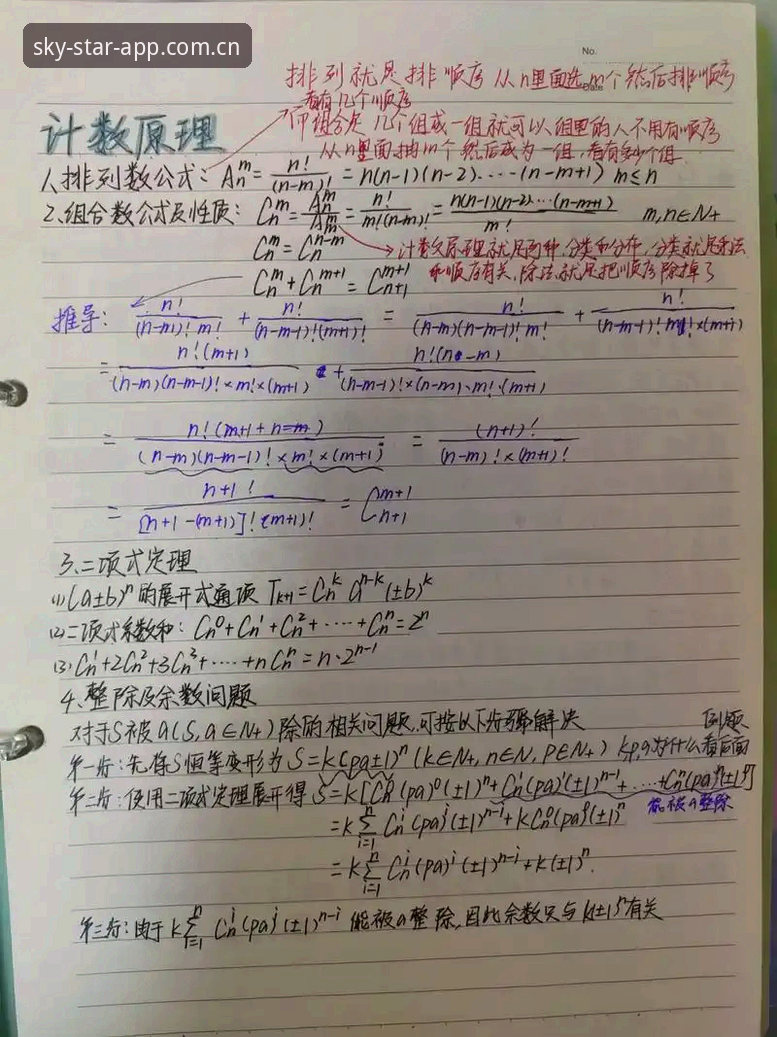 sky-star-app.com.cn
No.
Date
排列就是排顺序 从n里面选m个然后排列顺序
看有几个顺序
组合是 几个组成一组就可以,组里的人不用有顺序
从n里面抽m个然后成为一组,看有多少个组
计数原理
1、排列数公式: Aₙᵐ = n!/(n-m)! = n(n-1)(n-2)····(n-m+1) m≤n
2、组合数公式及性质: Cₙᵐ = Aₙᵐ/Aₘᵐ = n!/m!(n-m)! = n(n-1)(n-2)···(n-m+1)/m! m,n∈N+
Cₙᵐ = Cₙⁿ⁻ᵐ
计数原理就是两种,分类和分步,分类就是
和顺序有关,除法就是把顺序除掉了
Cₙᵐ + Cₙᵐ⁺¹ = Cₙ₊₁ᵐ⁺¹
推导: n!/(n-m)!m! + n!/(n-m-1)!(m+1)! = n!/(n-m)(n-m-1)!m! + n!/(n-m-1)!m!×(m+1)
= n!(m+1)/(n-m)(n-m-1)!×m!×(m+1) + n!(n-m)/(n-m-1)!×(n-m)×m!×(m+1)
= n!(m+1+n-m)/(n-m)(n-m-1)!×m!×(m+1) = (n+1)!/(n-m)!×(m+1)!
= n+1!/[n+1-(m+1)]!(m+1)! = Cₙ₊₁ᵐ⁺¹
3、二项式定理
(1)(a±b)ⁿ的展开式通项 Tₖ₊₁=Cₙᵏaⁿ⁻ᵏ(±b)ᵏ
(2)二项式系数和: Cₙ⁰+Cₙ¹+Cₙ²+····+Cₙⁿ=2ⁿ
(3) Cₙ¹+2Cₙ²+3Cₙ³+····+nCₙⁿ=n·2ⁿ⁻¹
4、整除及余数问题
对于S被a(S,a∈N+)除的相关问题,可按以下步骤解决 例题
第一步:先将S恒等变形为S=k(pa±1)ⁿ(k∈N+,n∈N,p∈N+) k,p,a为什么看后面
第二步:使用二项式定理展开得 S=k[Cₙ⁰(pa)⁰(±1)ⁿ+Cₙ¹(pa)¹(±1)ⁿ⁻¹+····+Cₙⁿ(pa)ⁿ(±1)⁰]
能被a整除
=k∑ⁿᵢ₌₁Cₙⁱ(pa)ⁱ(±1)ⁿ⁻ⁱ+kCₙ⁰(pa)⁰(±1)ⁿ
=k∑ⁿᵢ₌₁Cₙⁱ(pa)ⁱ(±1)ⁿ⁻ⁱ+k(±1)ⁿ.
第三步:由于k∑ⁿᵢ₌₁Cₙⁱ(pa)ⁱ(±1)ⁿ⁻ⁱ能被a整除,因此余数只与k(±1)ⁿ有关